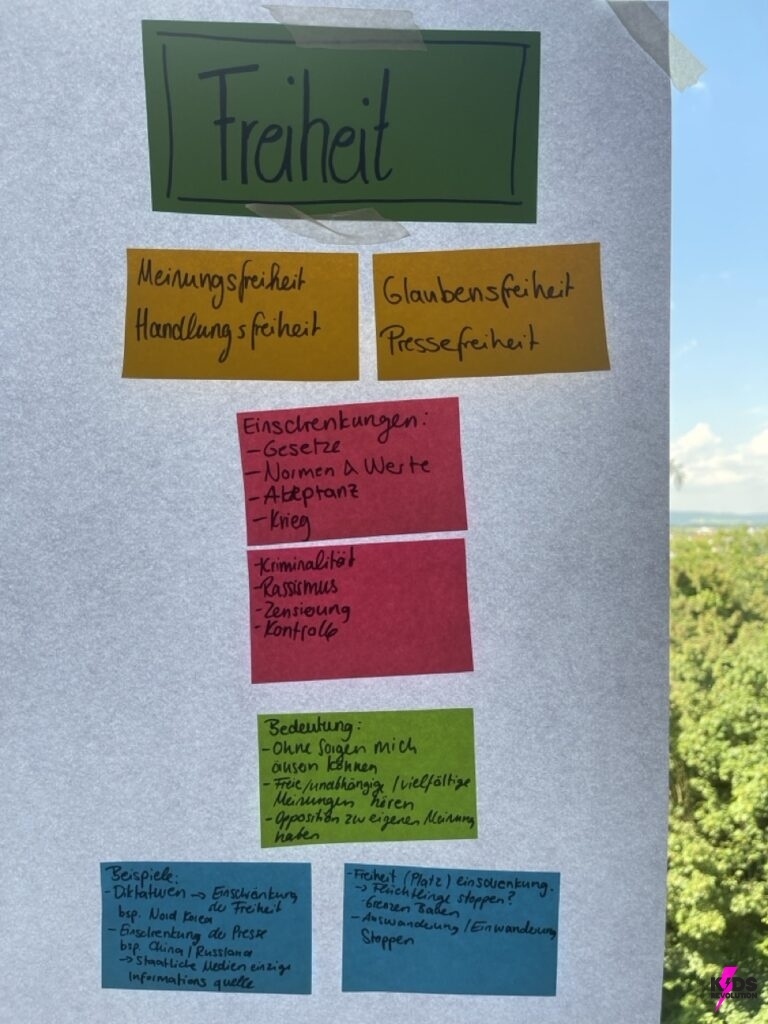 Freiheit
Meinungsfreiheit
Handlungsfreiheit
Glaubensfreiheit
Pressefreiheit
Einschrenkungen:
- Gesetze
- Normen & Werte
- Akzeptanz
- Krieg
- Kriminalität
- Rassismus
- Zensierung
- Kontrolle
Bedeutung:
- Ohne Sorgen mich
äusern können
- Freie/unabhängige/vielfältige
Meinungen hören
- Opposition zur eigenen Meinung
haben
Beispiele:
- Diktaturen → Einschränkung
der Freiheit
bsp. Nord Korea
- Einschrenkung der Presse
bsp. China/Russland
→ Staatliche Medien einzige
Informations quelle
- Freiheit (Platz) einschrenkung.
→ Flüchtlinge stoppen?
Grenzen Bauen
- Auswanderung/Einwanderung
Stoppen
KIDS
REVOLUTION